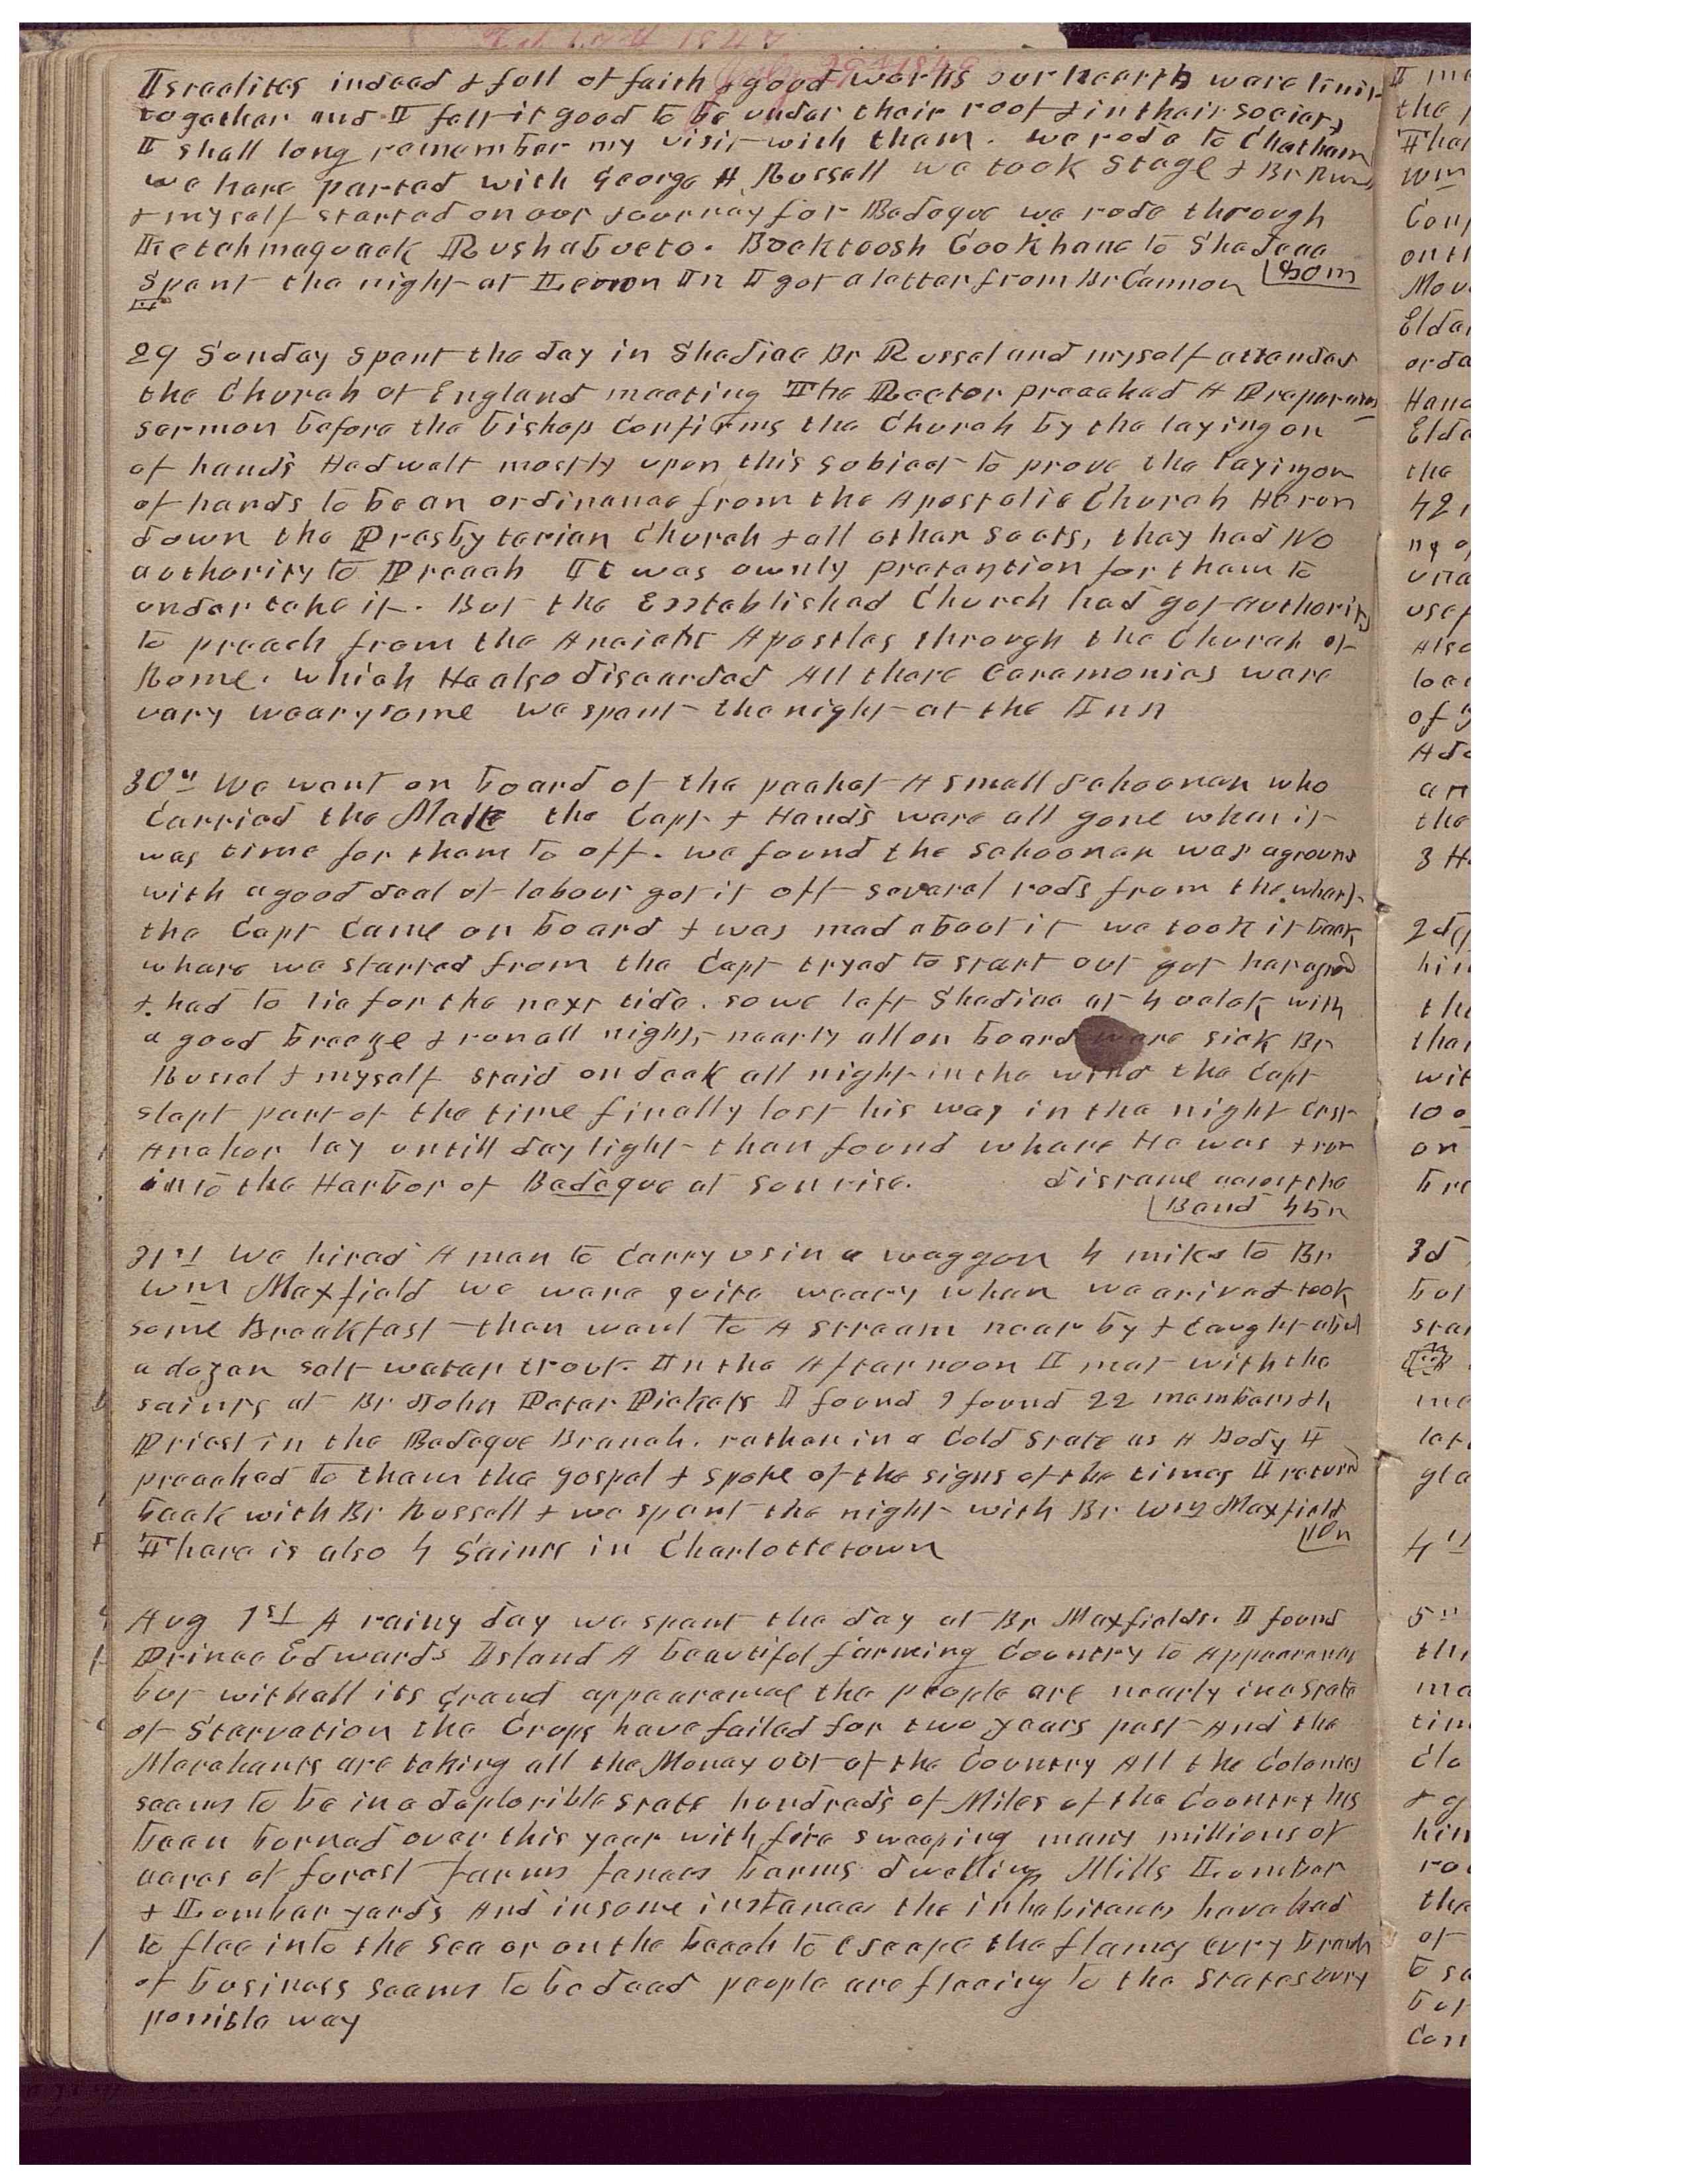 Israelites indeed & full of faith & good works our hearts were knit
together and I felt it good to be under their roof & in their society
I shall long remember my visit with them. we rode to Chatham
we here parted with George H Russell we took Stage & Br
& myself started on our Journey for Bedeque we rode through
Retchmaguack Rushabucto. Bocktoosh Cookhane to Shediac
Spent the night at Inn I got a letter from Br Cannon 80 m
29 Sunday Spent the day in Shediac Br Russel and myself attended
the Church of England meeting The Rector preached A
sermon before the bishop Confirms the Church by the laying on
of hands He dwelt mostly upon this subject to prove the laying on
of hands to be an ordinance from the Apostolic Church He run
down the Presbyterian Church & all other Sects, they had No
authority to Preach It was ownly pretention for them to
undertake it. But the Established Church had got authority
to preach from the Ancient Apostles through the Church of
Rome. which He also discarded All there Ceremonies were
very wearysome we spent the night at the Inn
30th We went on board of the packet A small schooner who
Carried the Male the Capt & Hands were all gone when it
was time for them to off. we found the schooner was aground
with a good deal of labour got it off several rods from the wharf
the Capt Came on board & was mad about it we took it back
where we started from the Capt tryed to start out got
& had to lie for the next tide. so we left Shediac at 4 oclok with
a good breeze & run all night, nearly all on board were sick Br
Russel & myself staid on deck all night in the wind the Capt
slept part of the time finally lost his way in the night Cast
Anchor lay untill day light then found where He was & run
into the Harbor of Bedeque at sunrise. distance across the
Band 45 m
31st We hired A man to Carry us in a waggon 4 miles to Br
Wm Maxfield we were quite weary when we arived & took
some Breakfast then went to A stream near by & Caught about
a dozen salt water trout. In the Afternoon I met with the
saints at Br John Peter Pickets I found I found 22 members
Priest in the Bedeque Branch. rather in a Cold State as A Body I
preached to them the gospel & spoke of the signs of the times I returnd
back with Br Russell & we spent the night with Br Wm Maxfield
There is also 4 Saints in Charlottetown 10 m
Aug 1st A rainy day we spent the day at Br Maxfields. I found
Prince Edwards Island A beautiful farming Country to Appearances
but withall its grand appearance the people are nearly in a state
of Starvation the Crops have failed for two years past And the
Merchants are taking all the Money out of the Country All the Colonies
seems to be in a deplorible state hundreds of Miles of the Country has
been burned over this year with fire sweeping many millions of
acres of forest farms fences barns dwellings Mills Lumber
& Lumber yards And in some instances the inhabitants have had
to flee into the Sea or on the beach to escape the flames evry branch
of business seems to be dead people are fleeing to the States evry
possible way